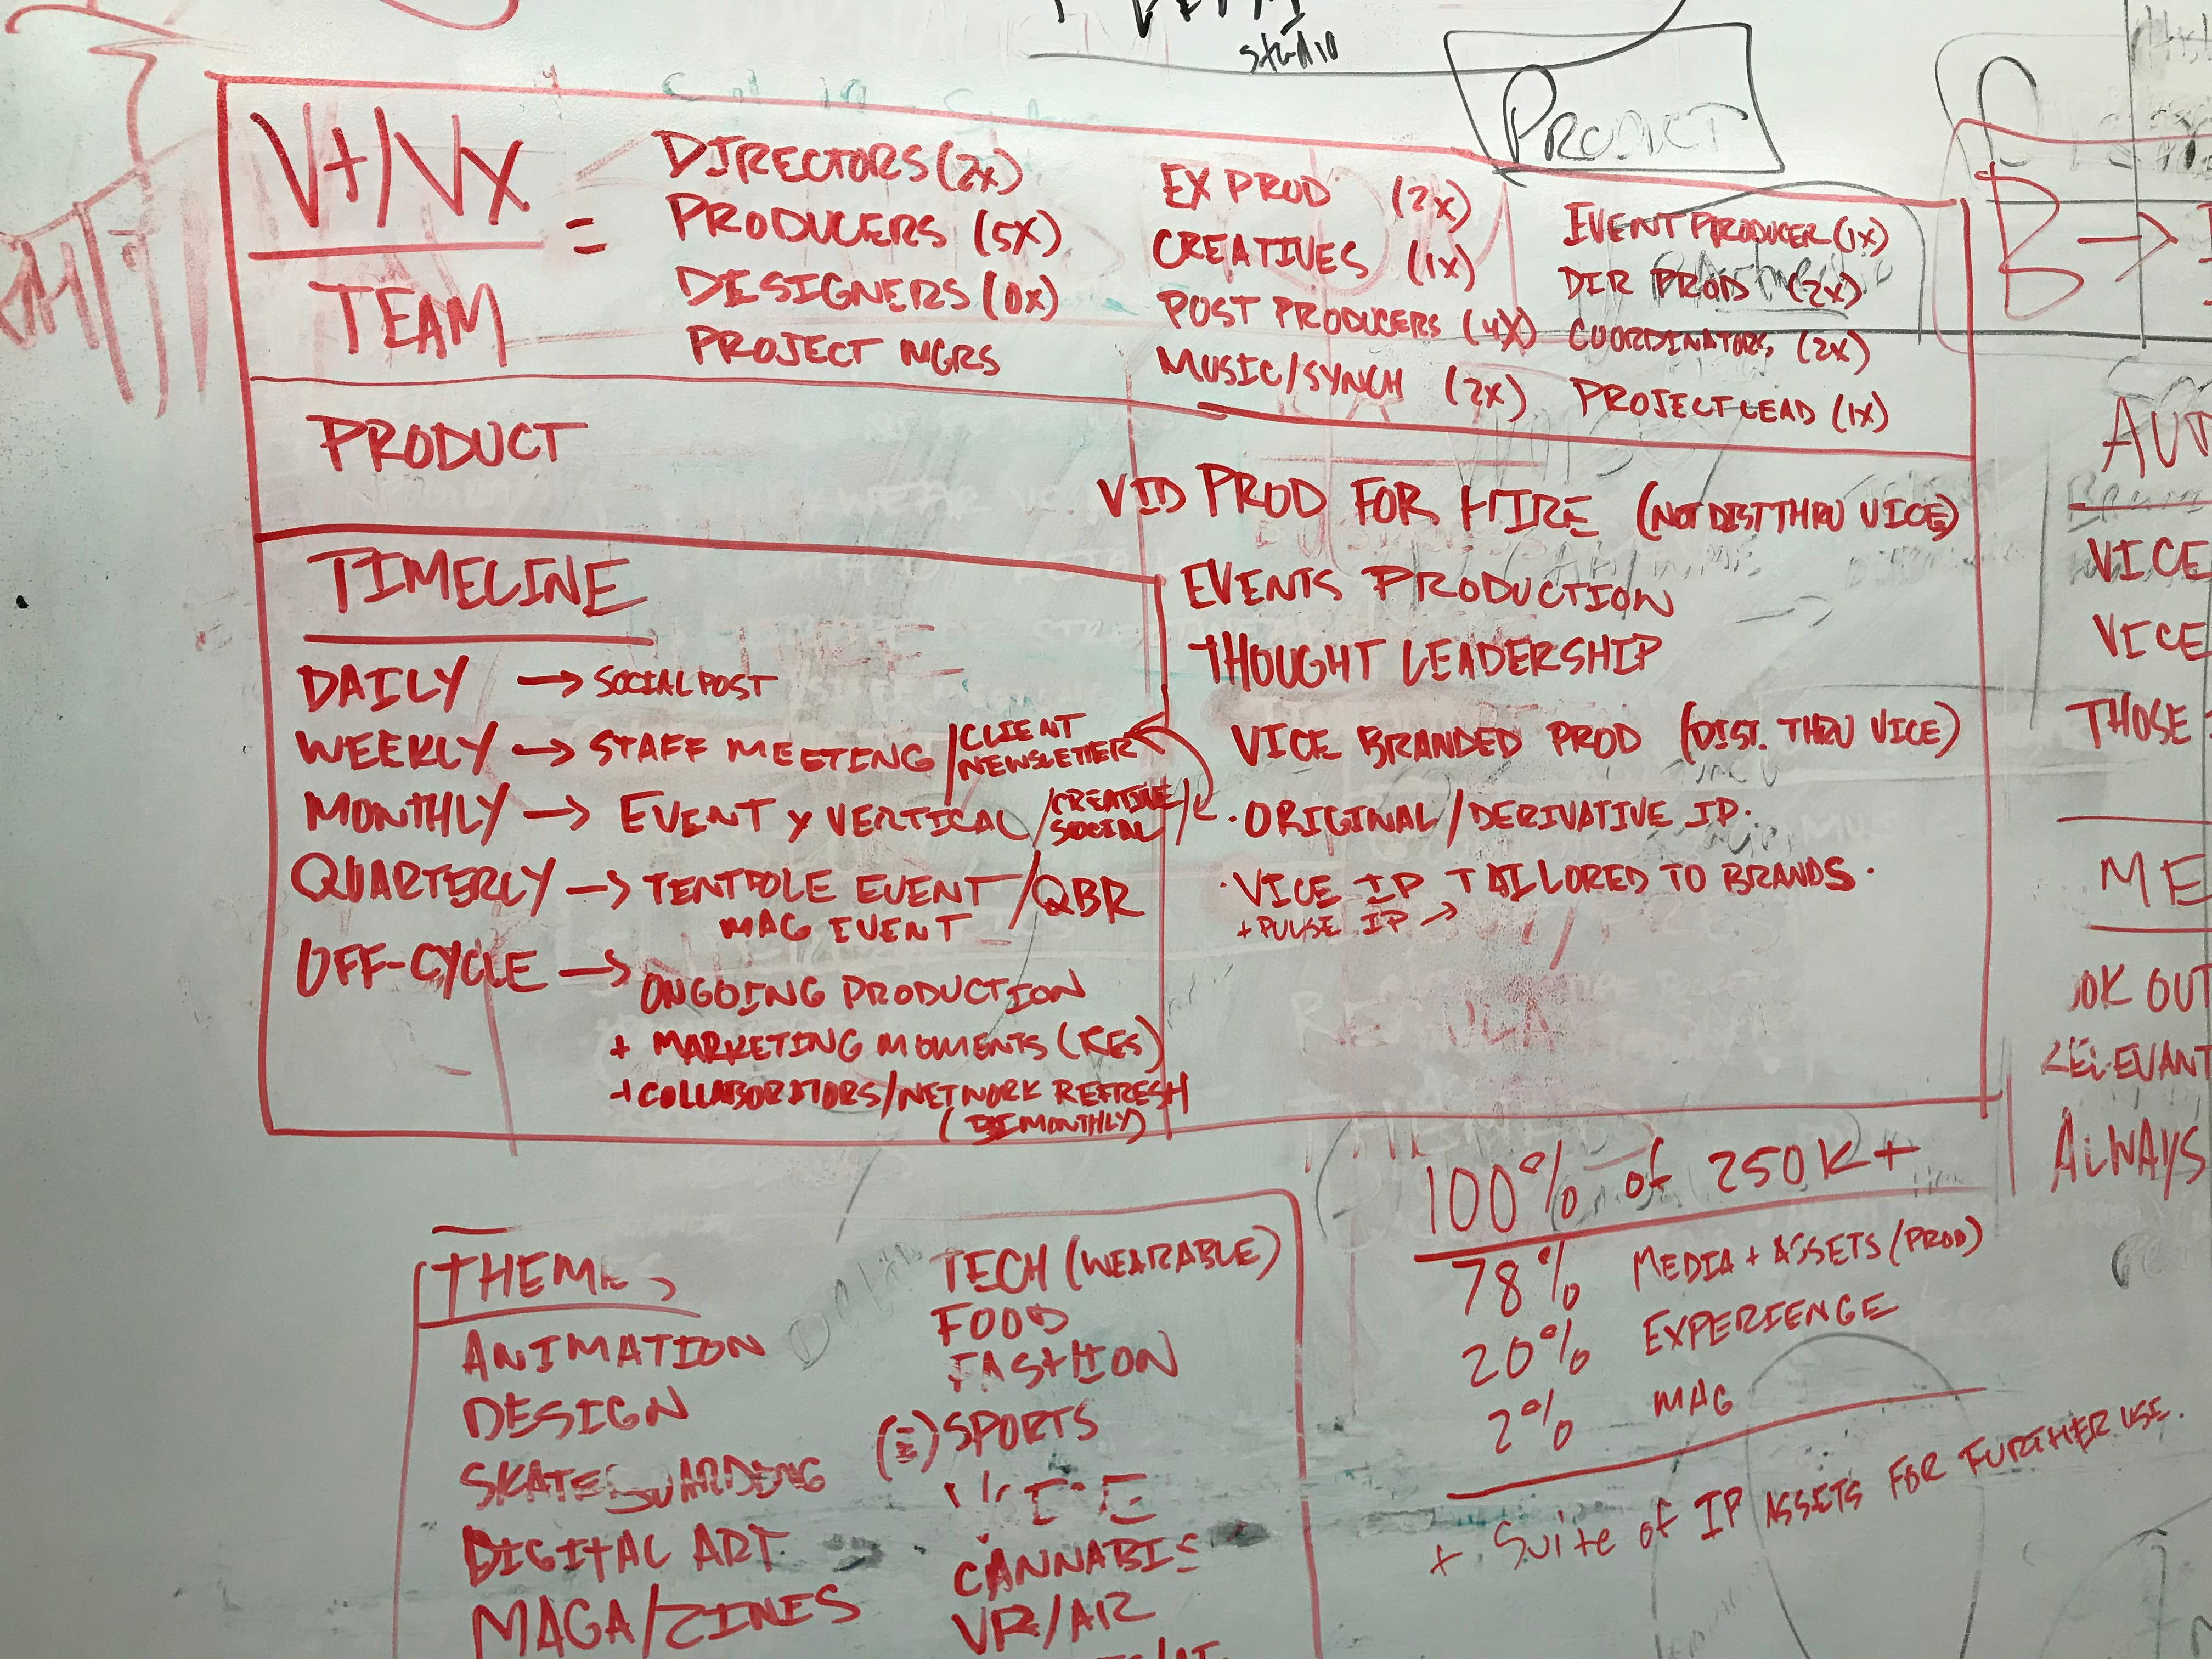 studio
PRODUCT
V+/VX
TEAM
=
DIRECTORS (2X)
PRODUCERS (5X)
DESIGNERS (0X)
PROJECT MGRS
EX PROD (2X)
CREATIVES (1X)
POST PRODUCERS (4X)
MUSIC/SYNCH (2X)
EVENT PRODUCER (1X)
DIR PROD (2X)
COORDINATORS (2X)
PROJECT LEAD (1X)
B →
PRODUCT
VID PROD FOR HIRE (NOT DIST THRU VICE)
EVENTS PRODUCTION
THOUGHT LEADERSHIP
VICE BRANDED PROD (DIST. THRU VICE)
· ORIGINAL/DERIVATIVE IP ·
· VICE IP TAILORED TO BRANDS ·
+ PULSE IP →
TIMELINE
DAILY → SOCIAL POST
WEEKLY → STAFF MEETING / CLIENT NEWSLETTER
MONTHLY → EVENT Y VERTICAL / CREATIVE SOCIAL /
QUARTERLY → TENTPOLE EVENT / QBR
MAG EVENT
OFF-CYCLE → ONGOING PRODUCTION
+ MARKETING MOMENTS (RES)
+ COLLABORATORS/NETWORK REFRESH
(BI MONTHLY)
AUT
VICE
VICE
THOSE
ME
OK OUT
RELEVANT
ALWAYS
THEMES
ANIMATION
DESIGN
SKATEBOARDING
DIGITAL ART
MAGA/ZINES
TECH (WEARABLE)
FOOD
FASHION
(E) SPORTS
CANNABIS
VR/AR
100% of 250K+
78% MEDIA + ASSETS (PROD)
20% EXPERIENCE
2% MAG
+ Suite of IP ASSETS FOR FURTHER USE.